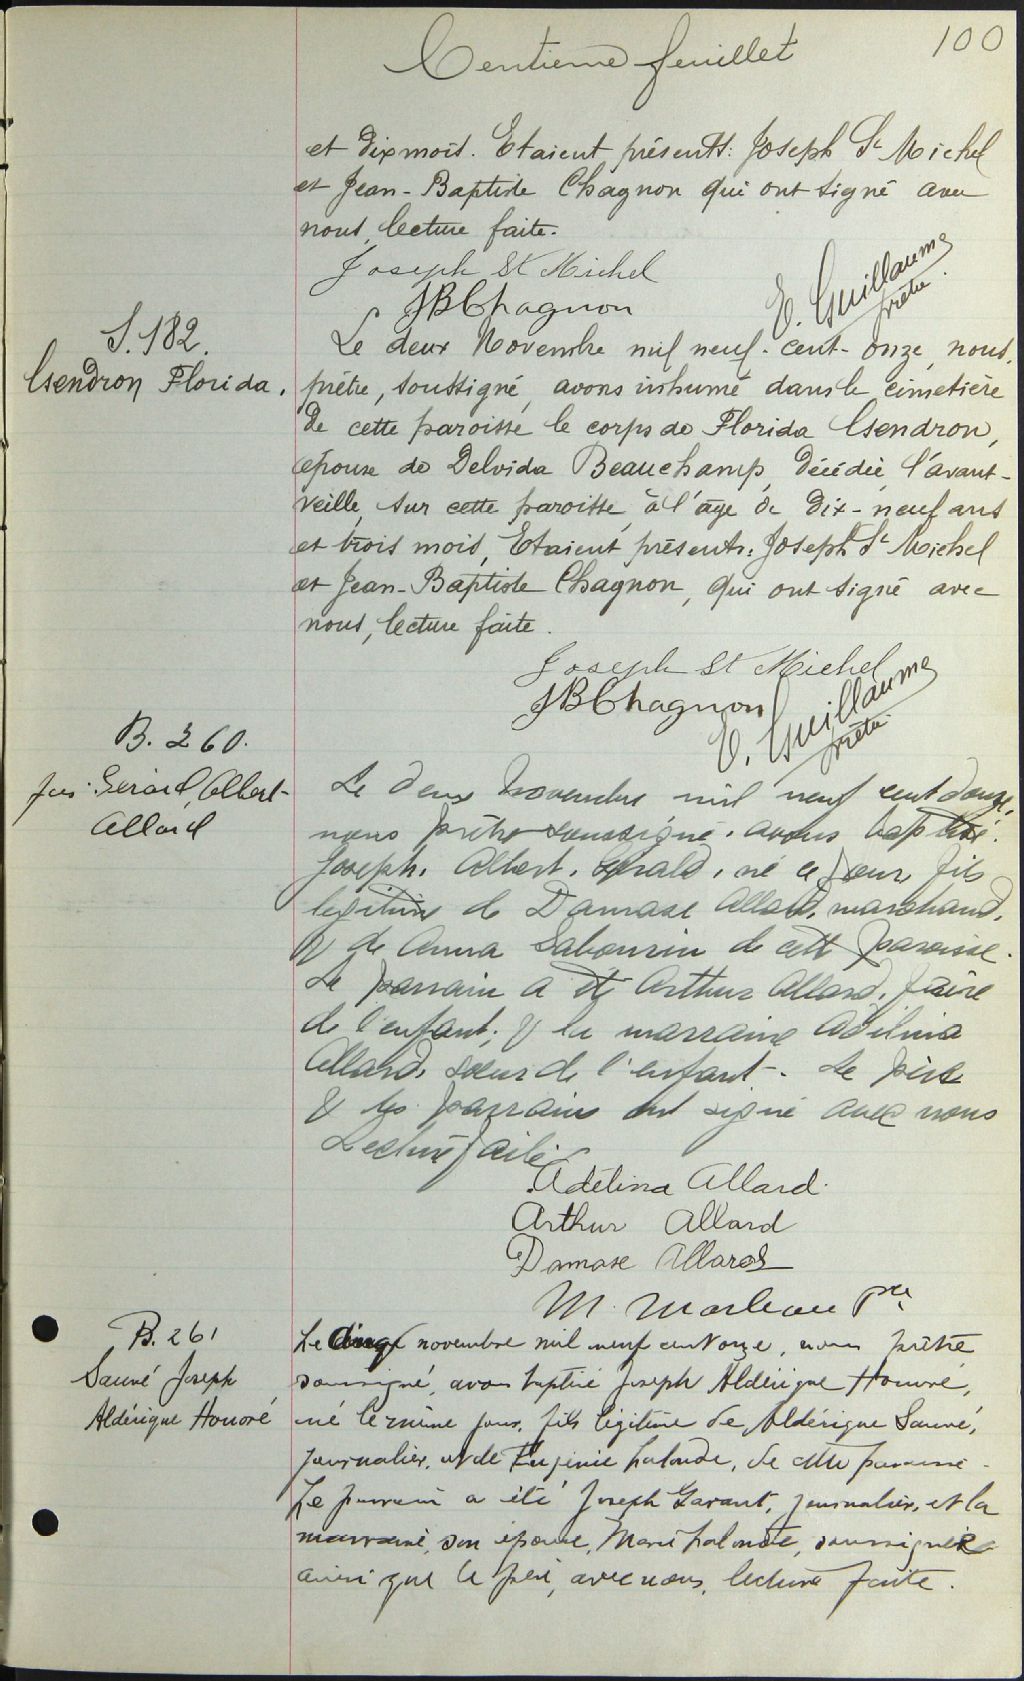 Centieme feuillet
100
et dix mois. Etaient présents: Joseph St Michel
et Jean-Baptiste Chagnon qui ont signé avec
nous, lecture faite.
Joseph St Michel
JB Chagnon
E. Guillaume
prêtre
S. 182.
Gendron Florida.
Le deux Novembre mil neuf-cent-onze, nous,
prêtre, soussigné, avons inhumé dans le cimetière
de cette paroisse le corps de Florida Gendron,
épouse de Delvida Beauchamp, décédée, l'avant-
veille, sur cette paroisse, à l'âge de dix-neuf ans
et trois mois, Etaient présents: Joseph St Michel
et Jean-Baptiste Chagnon, qui ont signé avec
nous, lecture faite.
Joseph St Michel
JB Chagnon
E. Guillaume
prêtre
B. 260.
Jos. Gérard, Albert
Allard
Le deux novembre mil neuf cent douze,
nous prêtre soussigné, avons baptisé
Joseph, Albert, Gérald, né ce jour, fils
legitime de Damase Allard, marchand,
& de Anna Sabourin de cette paroisse.
Le parrain a été Arthur Allard, frère
de l'enfant, & la marraine Adelina
Allard, soeur de l'enfant. Le père
& les parrains ont signé avec nous
Lecture faite
Adélina Allard.
Arthur Allard
Damase Allard
M. Marleau Ptre
B. 261
Sauvé Joseph
Aldérique Honoré
Le cinq novembre mil neuf cent onze, nous prêtre
soussigné, avons baptisé Joseph Aldérique Honoré,
né le même jour, fils légitime de Aldérique Sauvé,
journalier, et de Eugénie Lalonde, de cette paroisse.
Le parrain a été Joseph Garant, journalier, et la
marraine, son épouse, Marie Lalonde, soussignés
ainsi que le père, avec nous, lecture faite.